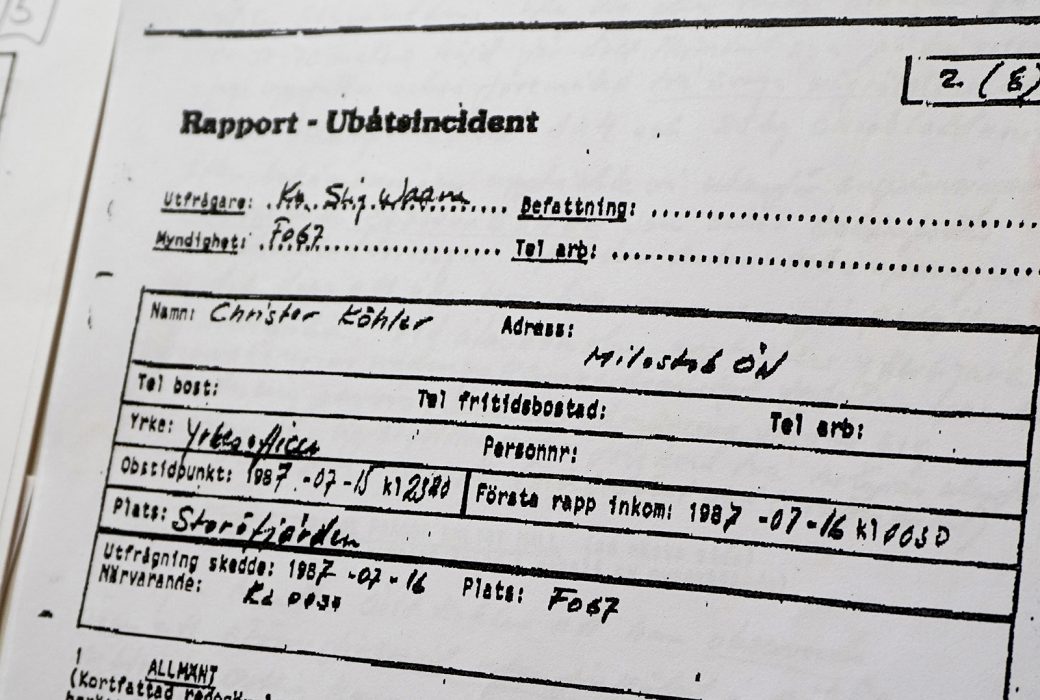 2 (8)
Rapport - Ubåtsincident
Utfrågare: Stig Befattning:
Myndighet: Fo67 Tel arb:
Namn: Christer Köhler Adress:
Milostab ÖN
Tel bost: Tel fritidsbostad: Tel arb:
Yrke: Yrkesofficer Personnr:
Obstidpunkt: 1987-07-15 kl Första rapp inkom: 1987-07-16 kl 0050
Plats: Storöfjärden
Utfrågning skedde: 1987-07-16 Plats: Fo67
Närvarande:
1
ALLMÄNT
(Kortfattad